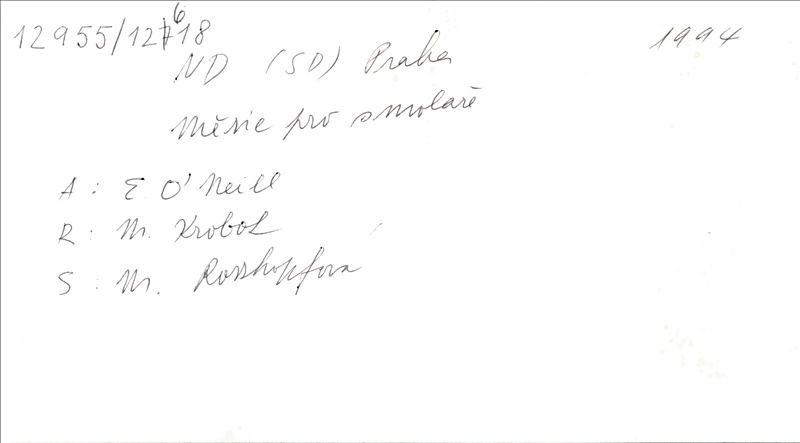 12955/12618 1994
ND (SD) Praha
Měsíc pro smolaře
A: E O'Neill
R: M. Krobot
S: M. Rosskopfova